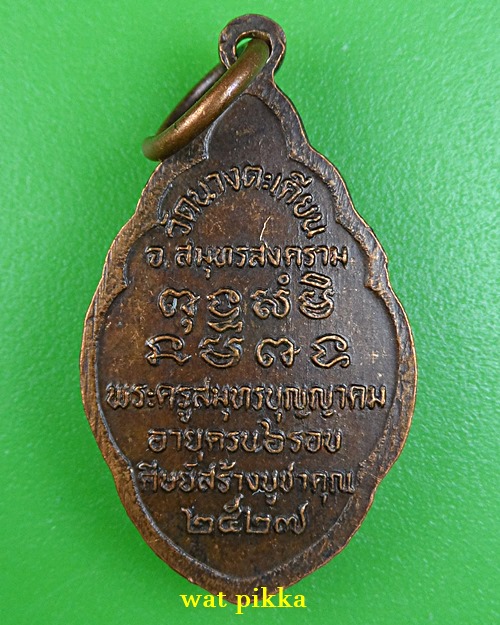 วัดนางตะเคียน
อ.สมุทรสงคราม
พระครูสมุทรบุญญาคม
อายุครบ๖รอบ
ศิษย์สร้างบูชาคุณ
๒๕๒๗
wat pikka